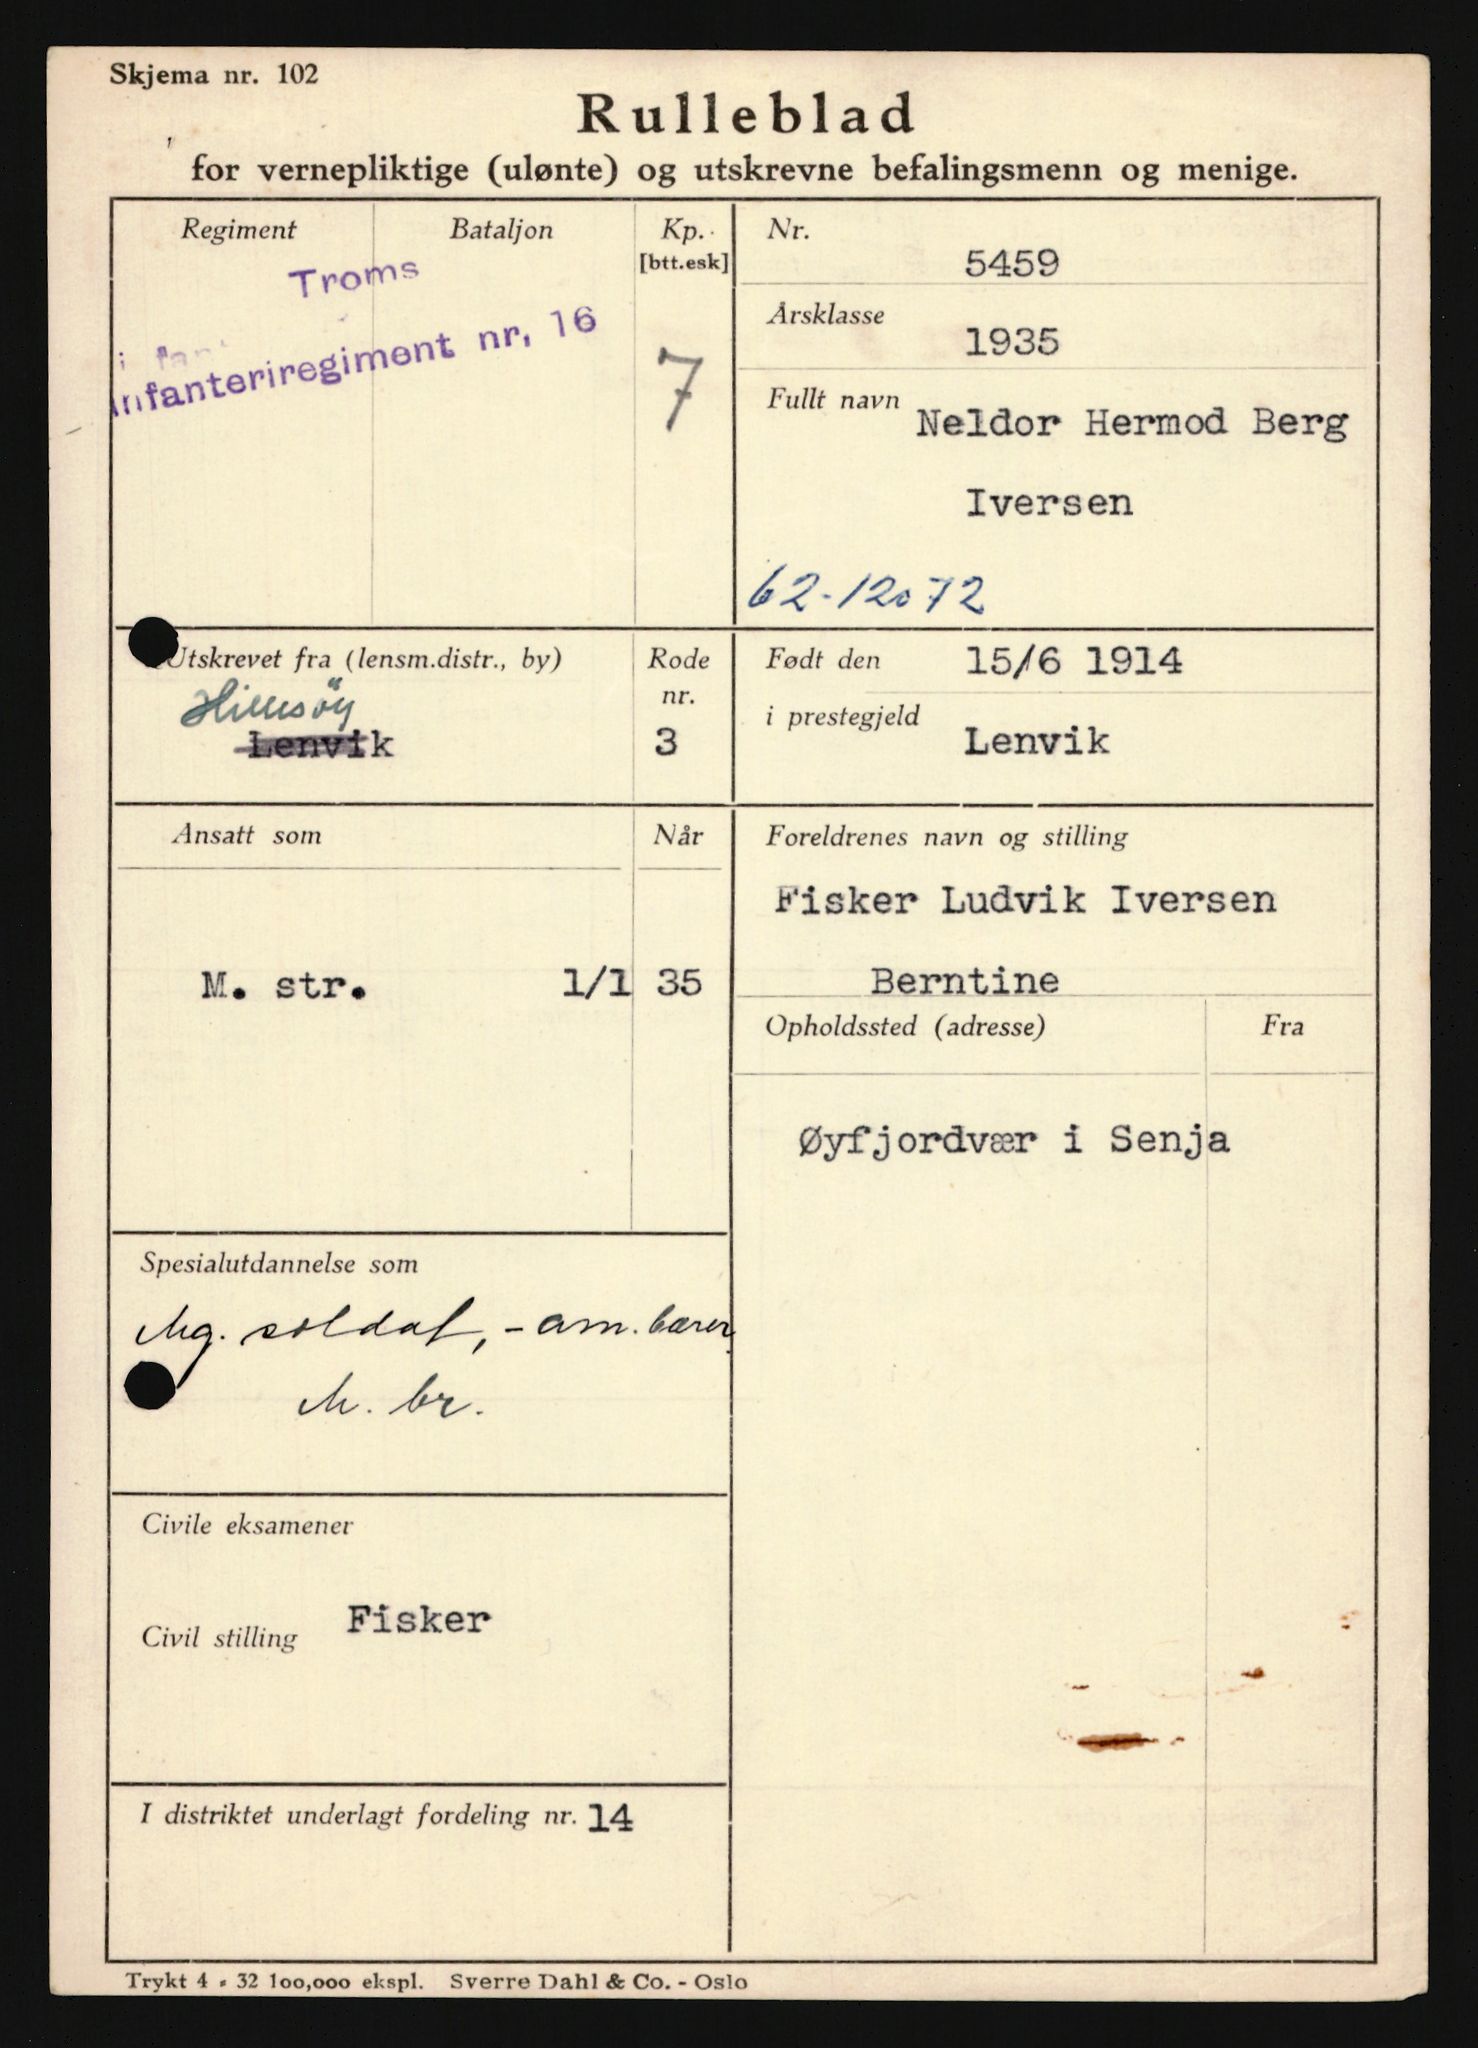 Skjema nr. 102
Rulleblad
for vernepliktige (ulønte) og utskrevne befalingsmenn og menige.
Regiment
Bataljon
Kp.
[btt.esk]
Troms
Infanteriregiment nr. 16
7
Nr.
5459
Årsklasse
1935
Fullt navn
Neldor Hermod Berg
Iversen
62-12072
Utskrevet fra (lensm.distr., by)
Hillesöy
Lenvik
Rode
nr.
3
Født den
15/6 1914
i prestegjeld
Lenvik
Ansatt som
Når
M. str. 1/1 35
Foreldrenes navn og stilling
Fisker Ludvik Iversen
Berntine
Opholdssted (adresse)
Fra
Øyfjordvær i Senja
Spesialutdannelse som
Mg. soldat, - am. bærer
M. br.
Civile eksamener
Civil stilling
Fisker
I distriktet underlagt fordeling nr. 14
Trykt 4 - 32 100,000 ekspl. Sverre Dahl & Co. - Oslo